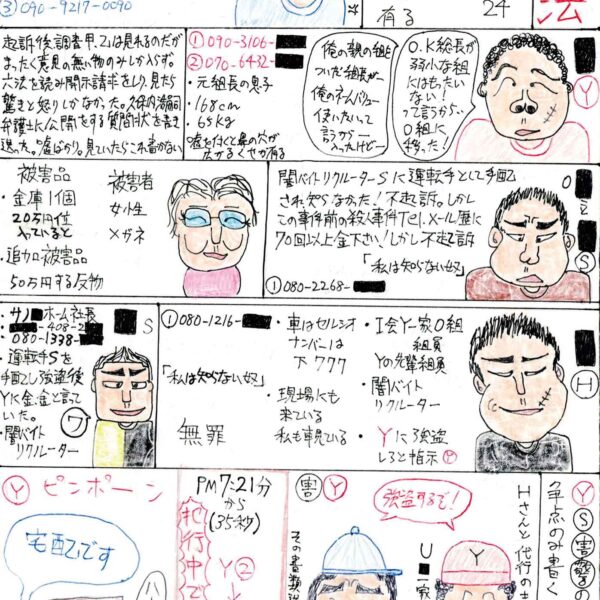 ③ 090-9217-0090
有る
24
法
起訴後調査甲、乙は見れるのだが
まったく意見の無い物のみしか入らず。
六法を読み開示請求をしり、見たら
驚きと怒りしかなかった。
弁護士に公開をする質問状を書き
送った。嘘ばかり。見ていたらこれ書かない
① 090-3106-
② 070-6432-
・元組長の息子
・168cm
・65kg
嘘を付くと鼻の穴が
広がるくせが有る
俺の親の組を
ついだ組長が
俺のネームバリュー
使いたいって
言うからー
入ったけどー
O.K総長が
弱小な組
にはもったい
ない!
って言うから…
O組に
移った!
Y
被害品
・金庫1個
20万円位
入っていると
・追加被害品
50万円する反物
被害者
女性
メガネ
闇バイトリクルーターSに運転手として手配
され、知らなかった!不起訴。しかし
この事件前の殺人事件Tel、メール歴に
70回以上金下さい!しかし不起訴
「私は知らない奴」
① 080-2268-
O
S
・サノ ホーム社長
408-2
・080-1338-
・運転手Sを
手配し強盗後
Yに金、金と言って
いた。
・闇バイト
リクルーター
S
ワ
① 080-1216-
「私は知らない奴」
無罪
・車はセルシオ
ナンバーは
下777
・現場にも
来ている
私も見ている
・I会Y一家O組
組員
Yの先輩組員
・闇バイト
リクルーター
・Yに強盗
しろと指示Ⓨ
H
Ⓨ ピンポーン
宅配です
PM7:21分
から
(35秒)
犯行中で
Y②
害 Ⓨ
強盗するで!
その書類
U 一家
Y
Ⓨ Ⓢ 害 警の
争点のみ書く
Hさんと代行の